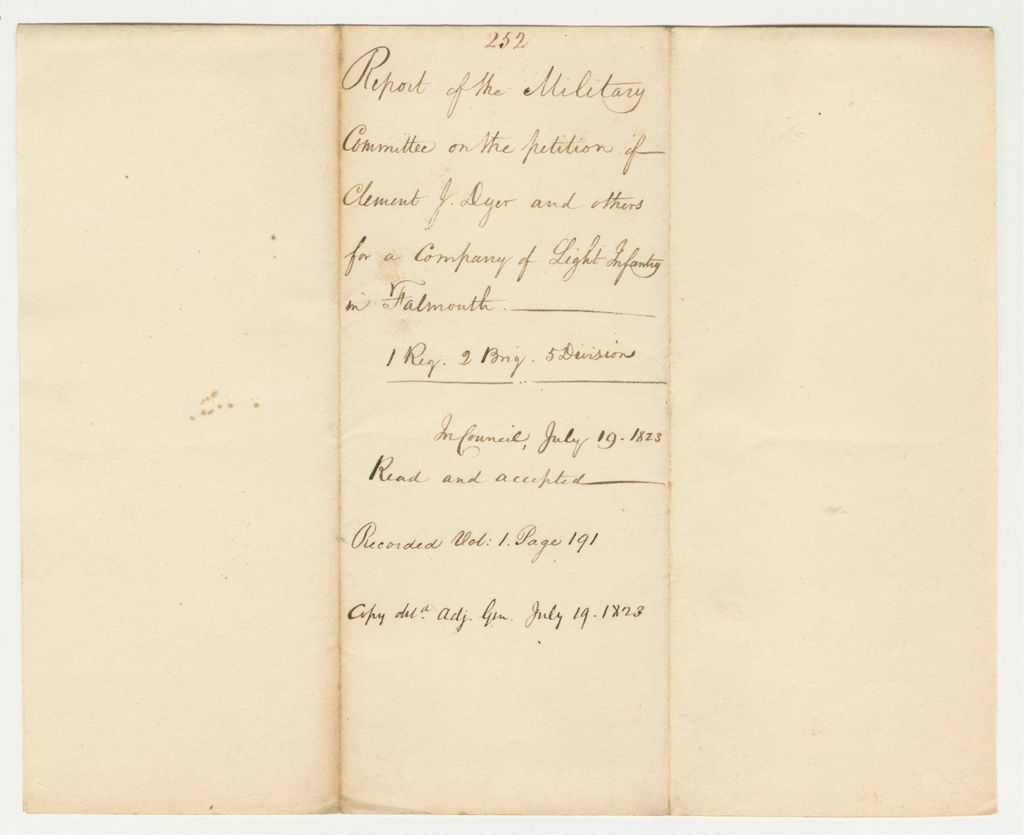 252
Report of the Military
Committee on the petition of
Clement J. Dyer and others
for a Company of Light Infantry
in Falmouth.
1 Reg. 2 Brig. 5 Division
In Council, July 19. 1823
Read and accepted
Recorded Vol: 1. Page 191
Copy deld. Adj. Gen. July 19. 1823